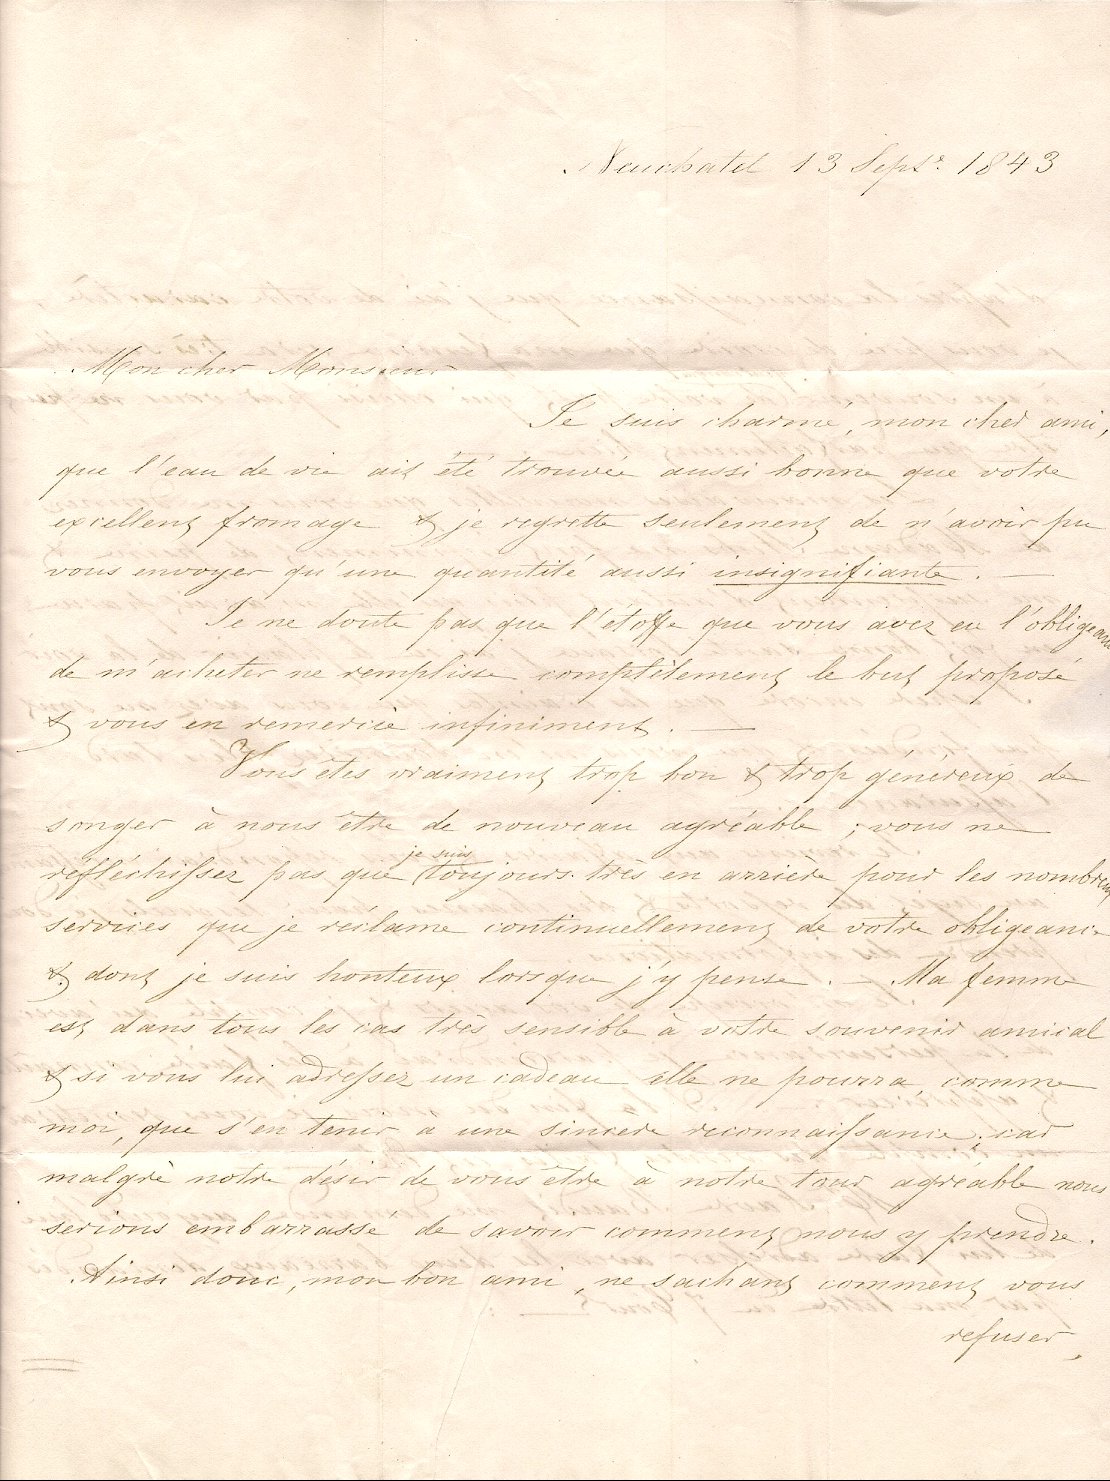 Neuchatel 13 Sept. 1843
Mon cher Monsieur
Je suis charmé, mon cher ami,
que l'eau de vie ait été trouvée aussi bonne que votre
excellent fromage & je regrette seulement de n'avoir pu
vous envoyer qu'une quantité aussi insignifiante. —
Je ne doute pas que l'étoffe que vous avez eu l'obligeance
de m'acheter ne remplisse complètement le but proposé
& vous en remercie infiniment. —
Vous êtes vraiment trop bon & trop généreux de
songer à nous être de nouveau agréable ; vous ne
je suis
réfléchissez pas que toujours très en arrière pour les nombreux
services que je réclame continuellement de votre obligeance
& dont je suis honteux lorsque j'y pense. — Ma femme
est dans tous les cas très sensible à votre souvenir amical
& si vous lui adressez un cadeau elle ne pourra, comme
moi, que s'en tenir a une sincère reconnaissance; car
malgré notre désir de vous être à notre tour agréable nous
serions embarrassé de savoir comment nous y prendre.
Ainsi donc, mon bon ami, ne sachant comment vous
refuser,